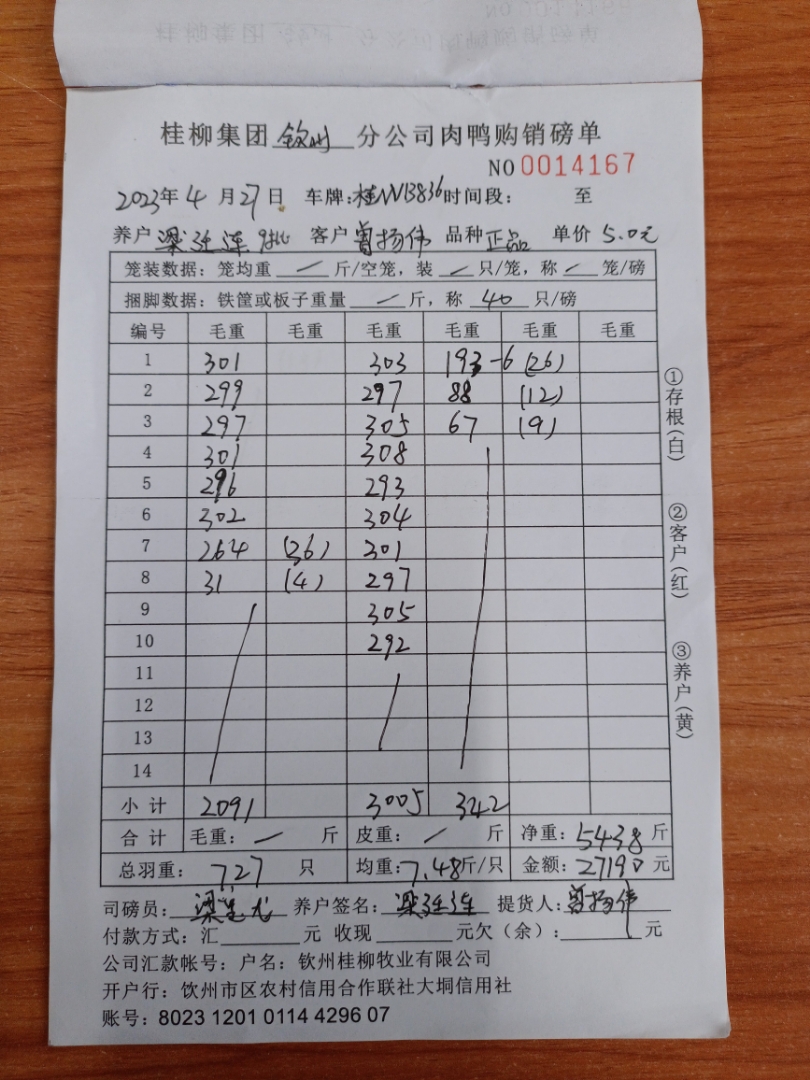 桂柳集团 钦州 分公司肉鸭购销磅单
NO 0014167
2023年 4 月 27日 车牌:桂NVB836 时间段: 至
养户 梁连连 9批 客户 曾扬伟 品种 正品 单价 5.0元
笼装数据: 笼均重 / 斤/空笼, 装 / 只/笼, 称 / 笼/磅
捆脚数据: 铁筐或板子重量 / 斤, 称 40 只/磅
编号 毛重 毛重 毛重 毛重 毛重 毛重
1 301 303 193-6 (26)
2 299 297 88 (12)
3 297 305 67 (9)
4 301 308
5 296 293
6 302 304
7 264 (36) 301
8 31 (4) 297
9 305
10 292
11
12
13
14
小计 2091 3005 342
合计 毛重: / 斤 皮重: / 斤 净重: 5438 斤
总羽重: 727 只 均重: 7.48 斤/只 金额: 27190 元
司磅员: 养户签名: 梁连连 提货人: 曾扬伟
付款方式: 汇 元 收现 元欠(余): 元
公司汇款帐号: 户名: 钦州桂柳牧业有限公司
开户行: 饮州市区农村信用合作联社大垌信用社
账号: 8023 1201 0114 4296 07
①存根(白)
②客户(红)
③养户(黄)